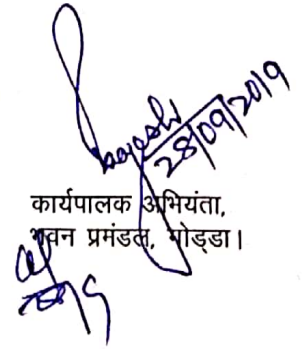 28/09/2019
कार्यपालक अभियंता,
भवन प्रमंडल, गोड्डा।